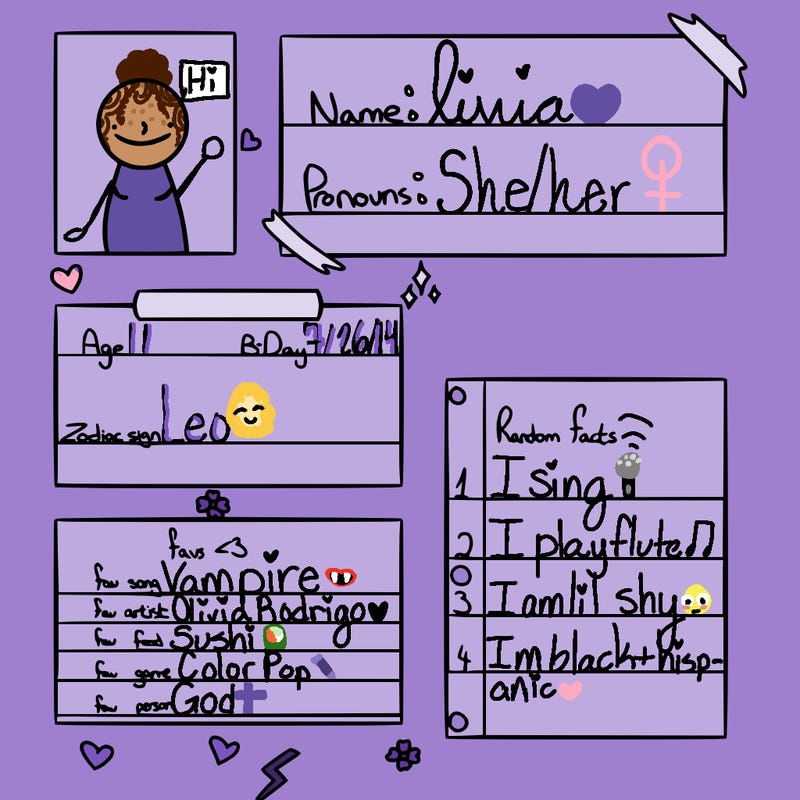 Hi
Name: livia
Pronouns: She/her
Age 11 B-Day 7/26/14
Zodiac sign Leo
favs <3
fav song Vampire
fav artist Olivia Rodrigo
fav food Sushi
fav game Color Pop
fav person God
Random facts
1 I sing
2 I play flute
3 I am lil shy
4 Im black+hisp-
anic